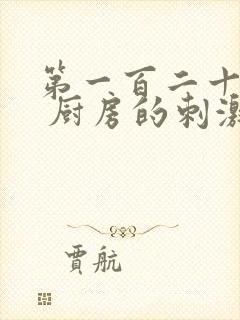 第一百二十
厨房的刺激
贾航